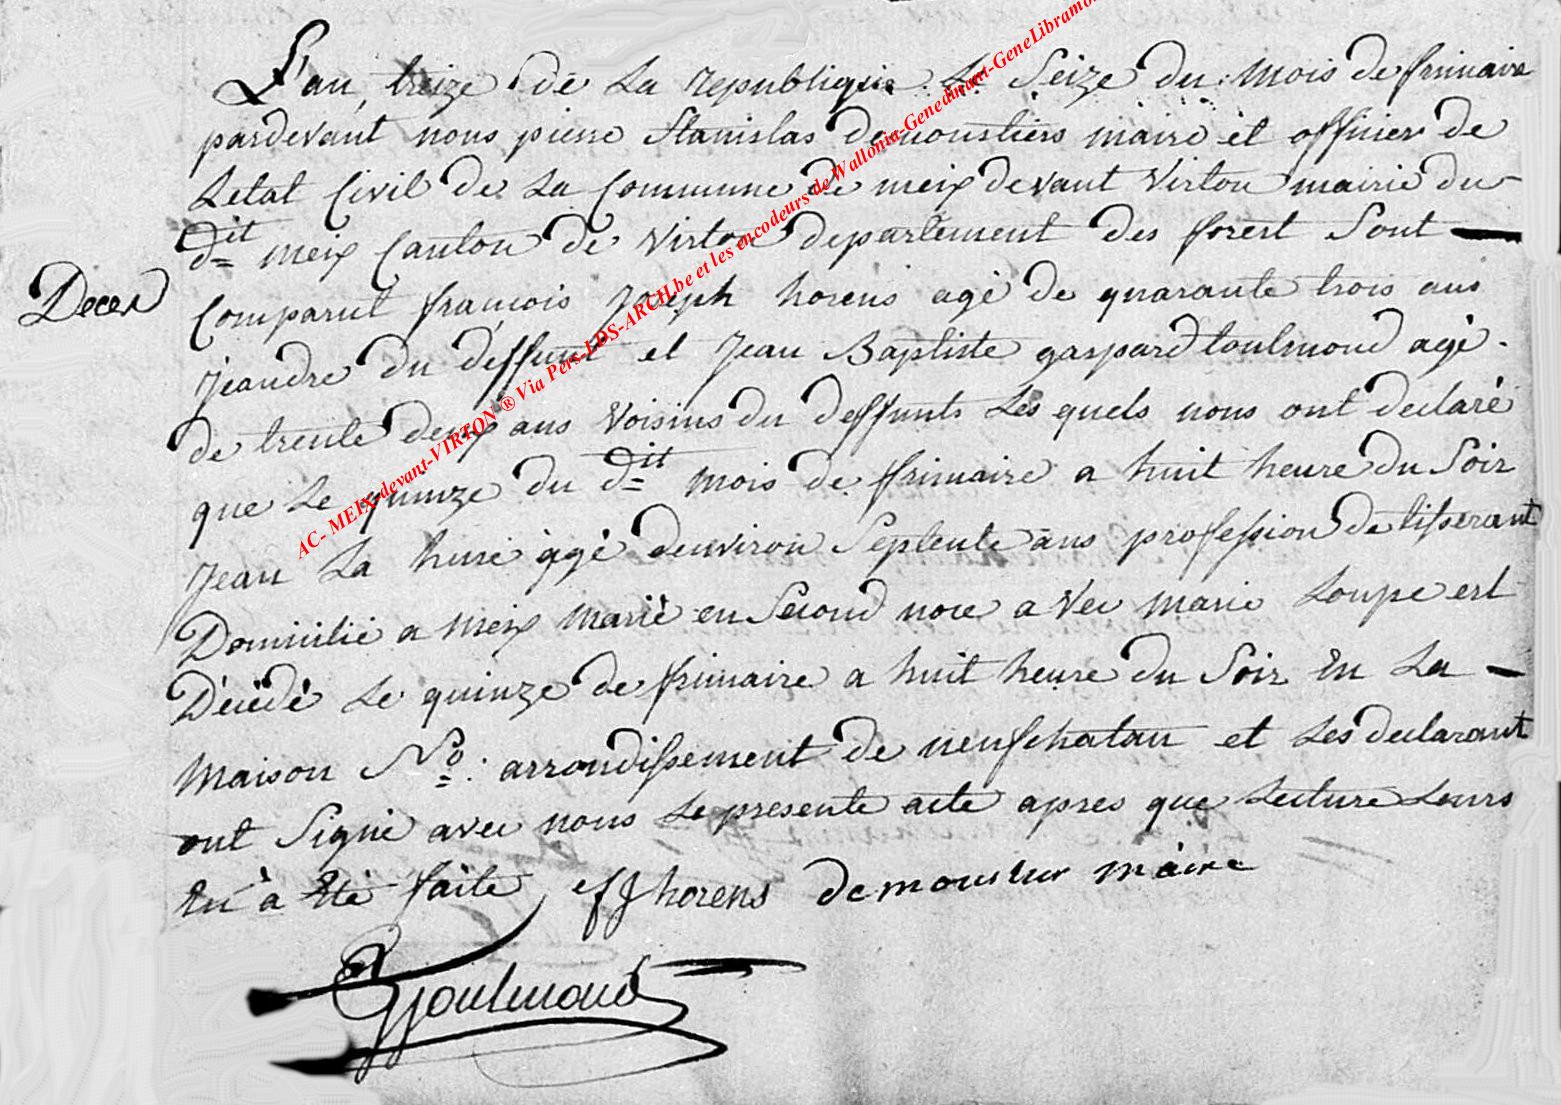 L'an treize de La republique Le Seize du mois de frimaire
pardevant nous pierre Stanislas demoustiers maire et officier de
Letat Civil de La Commune de meix devant Virton mairie du
dit meix Canton de Virton departement des forest Sont
Deces
Comparut francois Joseph horens agé de quarante trois ans
jeandre du deffunt et Jean Baptiste gaspard toulmond agé
de trente deux ans Voisins du deffunts Les quels nous ont declaré
que Le quinze du dit mois de frimaire a huit heure du Soir
Jean La hure agé denviron Septente ans profession de tisserant
Domicilié a meix marié en Second noce avec marie Loupe est
Décédé Le quinze de frimaire a huit heure du Soir En La
maison No: arrondissement de neufchatau et Les declarant
ont Signé avec nous Le presente acte apres que Lecture Leurs
En à Eté faite ffhorens demoustier màire
Toulmond
AC- MEIX-devant-VIRTON ® Via Pers-LDS-ARCH.be et les encodeurs de Wallonia-Genedinant-GeneLibramo